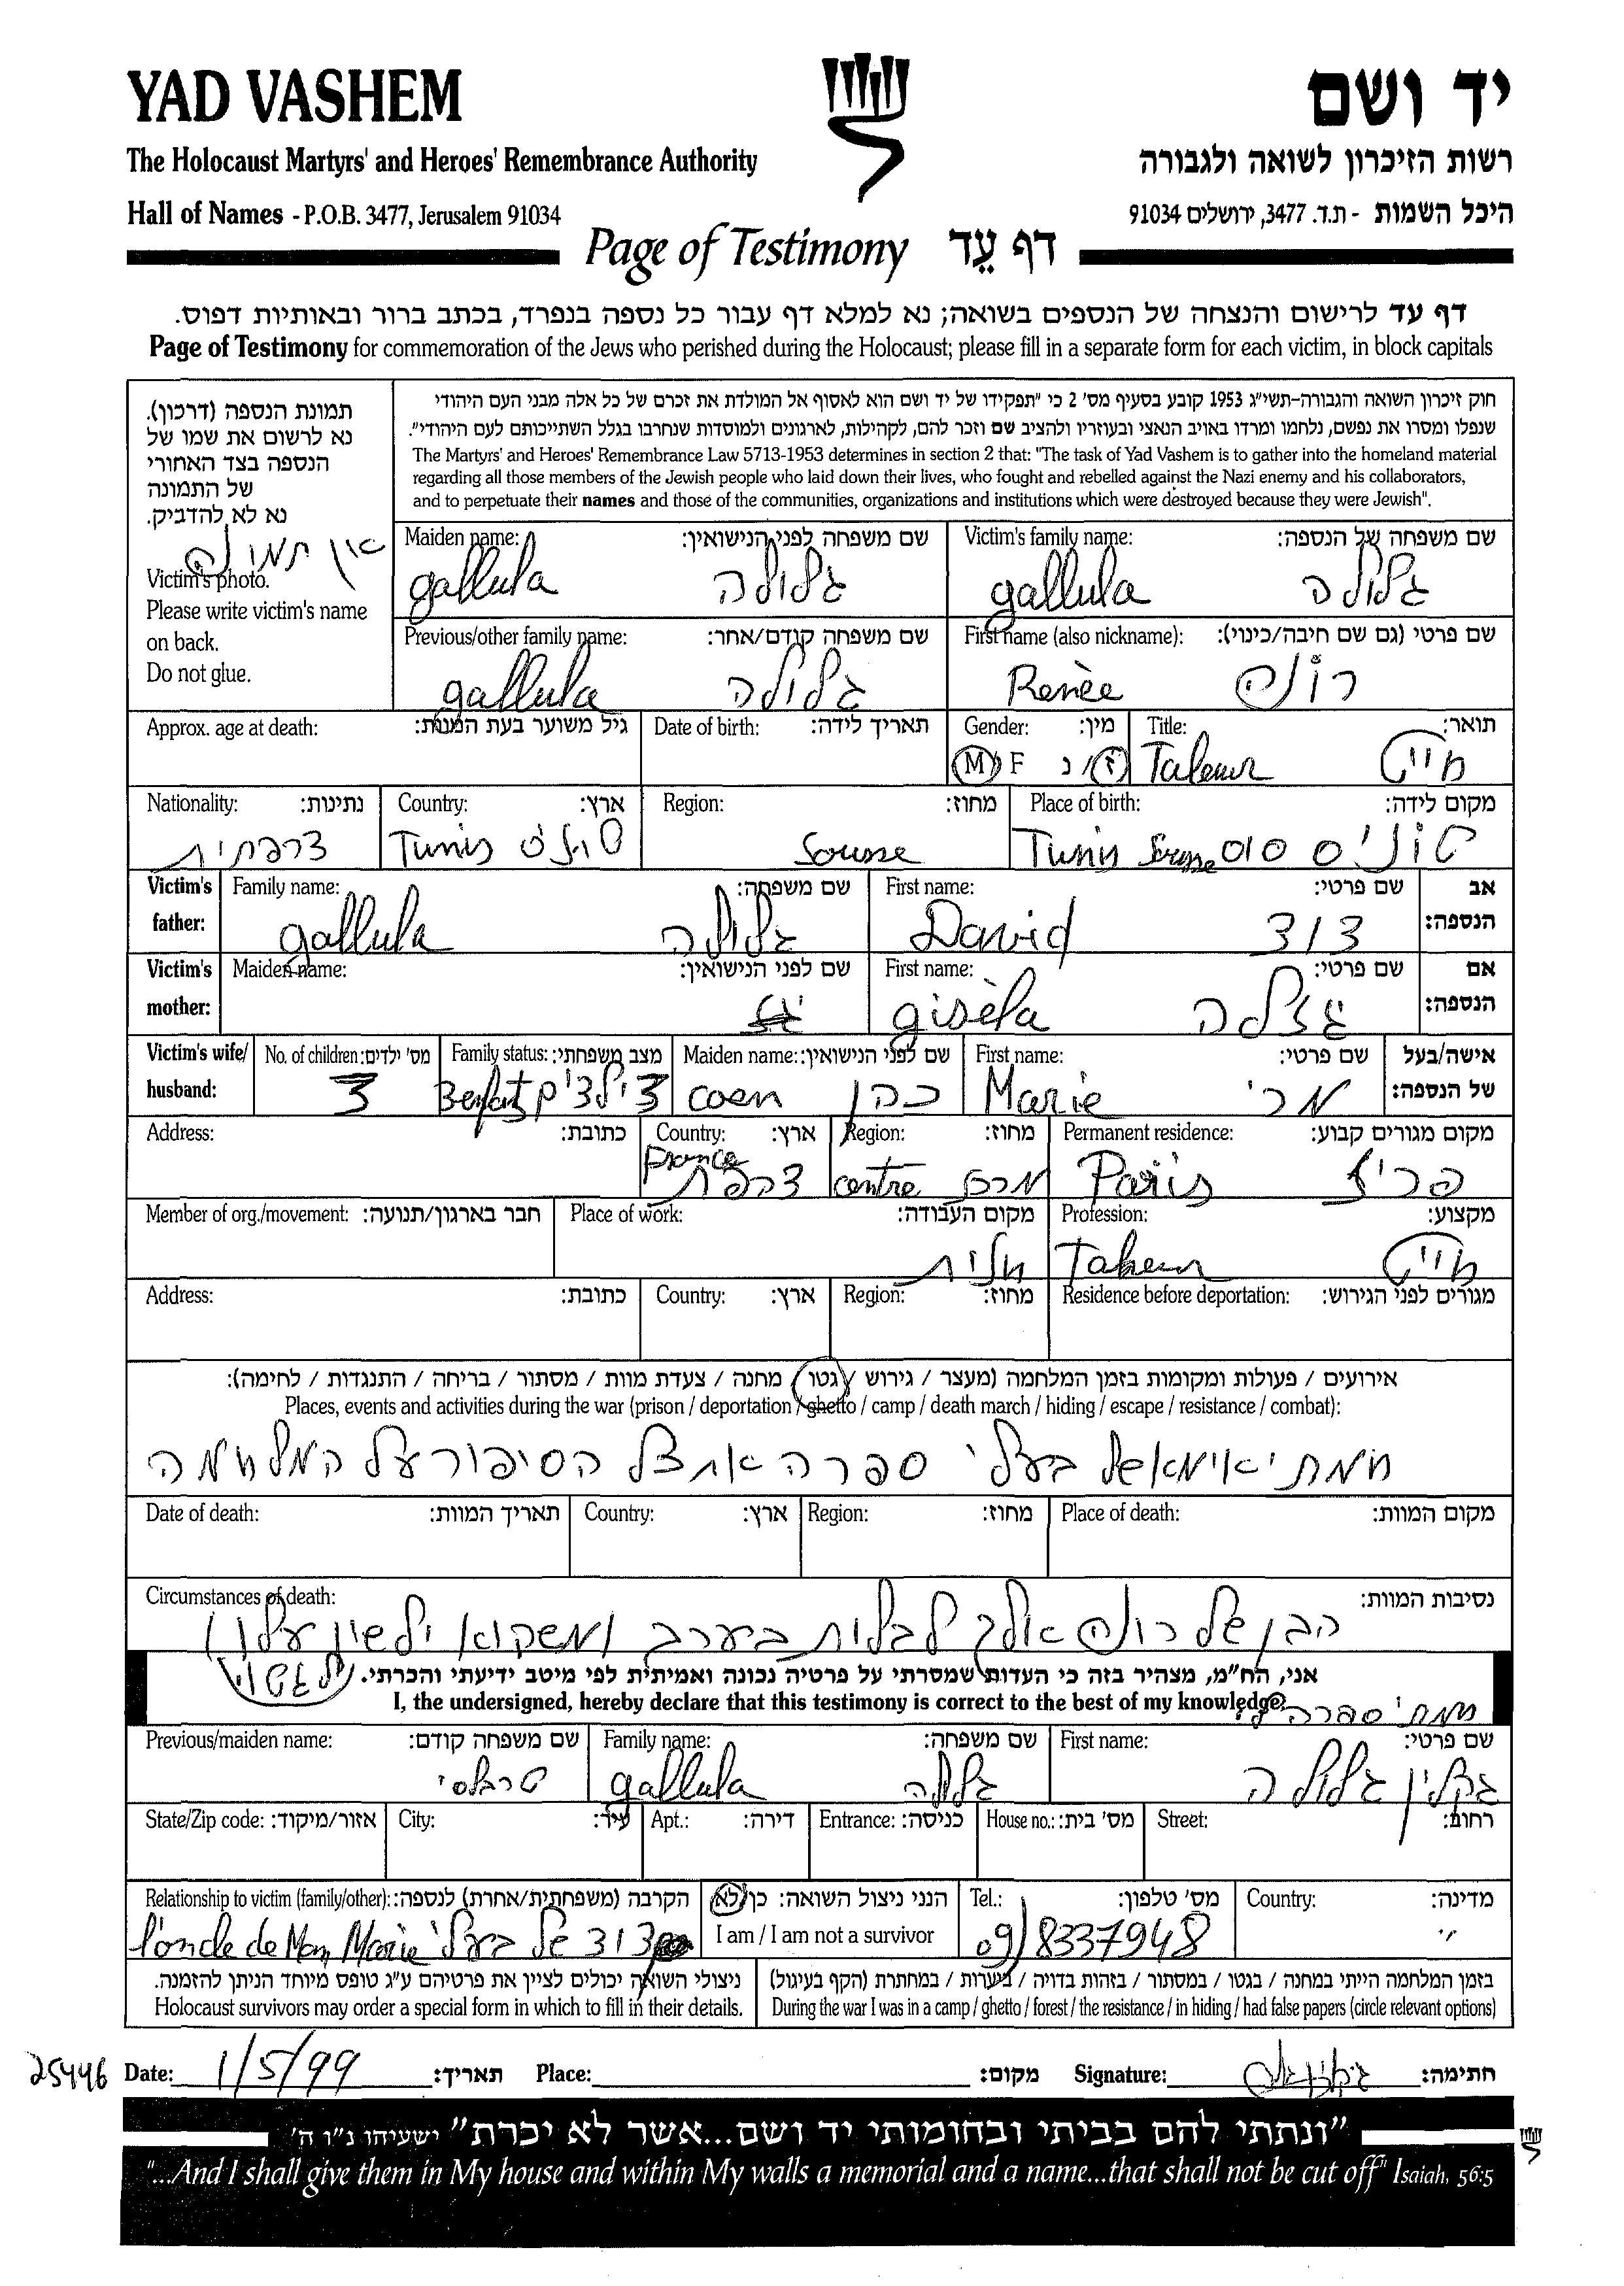 YAD VASHEM
יד ושם
The Holocaust Martyrs' and Heroes' Remembrance Authority
רשות הזיכרון לשואה ולגבורה
Hall of Names - P.O.B. 3477, Jerusalem 91034
היכל השמות - ת.ד. 3477, ירושלים 91034
Page of Testimony דף עֵד
דף עד לרישום והנצחה של הנספים בשואה; נא למלא דף עבור כל נספה בנפרד, בכתב ברור ובאותיות דפוס.
Page of Testimony for commemoration of the Jews who perished during the Holocaust; please fill in a separate form for each victim, in block capitals
תמונת הנספה (דרכון).
נא לרשום את שמו של
הנספה בצד האחורי
של התמונה
נא לא להדביק.
אין תמונה
Victim's photo.
Please write victim's name
on back.
Do not glue.
חוק זיכרון השואה והגבורה-תשי"ג 1953 קובע בסעיף מס' 2 כי "תפקידו של יד ושם הוא לאסוף אל המולדת את זכרם של כל אלה מבני העם היהודי
שנפלו ומסרו את נפשם, נלחמו ומרדו באויב הנאצי ובעוזריו ולהציב שם וזכר להם, לקהילות, לארגונים ולמוסדות שנחרבו בגלל השתייכותם לעם היהודי".
The Martyrs' and Heroes' Remembrance Law 5713-1953 determines in section 2 that: "The task of Yad Vashem is to gather into the homeland material
regarding all those members of the Jewish people who laid down their lives, who fought and rebelled against the Nazi enemy and his collaborators,
and to perpetuate their names and those of the communities, organizations and institutions which were destroyed because they were Jewish".
Maiden name: שם משפחה לפני הנישואין: Victim's family name: שם משפחה של הנספה:
gallula גלולה gallula גלולה
Previous/other family name: שם משפחה קודם/אחר: First name (also nickname): שם פרטי (גם שם חיבה/כינוי):
gallula גלולה Renèe רונה
Approx. age at death: גיל משוער בעת המוות: Date of birth: תאריך לידה: Gender: מין: Title: תואר:
M F ז/נ חייט
Nationality: נתינות: Country: ארץ: Region: מחוז: Place of birth: מקום לידה:
צרפתית Tunis טוניס Sousse Tunis Sousse טוניס סוס
Victim's father: Family name: שם משפחה: First name: שם פרטי: אב הנספה:
gallula גלולה David דוד
Victim's mother: Maiden name: שם לפני הנישואין: First name: שם פרטי: אם הנספה:
gisèla גזלה
Victim's wife/ husband: No. of children: מס' ילדים: Family status: מצב משפחתי: Maiden name: שם לפני הנישואין: First name: שם פרטי: אישה/בעל של הנספה:
3 3 ילדים coen כהן Marie מרי
Address: כתובת: Country: ארץ: Region: מחוז: Permanent residence: מקום מגורים קבוע:
France צרפת centre מרכז Paris פריז
Member of org./movement: חבר בארגון/תנועה: Place of work: מקום העבודה: Profession: מקצוע:
חנות חייט
Address: כתובת: Country: ארץ: Region: מחוז: Residence before deportation: מגורים לפני הגירוש:
אירועים / פעולות ומקומות בזמן המלחמה (מעצר / גירוש / גטו / מחנה / צעדת מוות / מסתור / בריחה / התנגדות / לחימה):
Places, events and activities during the war (prison / deportation / ghetto / camp / death march / hiding / escape / resistance / combat):
חמתי אימא של בעלי ספרה את כל הסיפור על המלחמה
Date of death: תאריך המוות: Country: ארץ: Region: מחוז: Place of death: מקום המוות:
Circumstances of death: נסיבות המוות:
הבן של רונה הלך לבלות בערב
אני, הח"מ, מצהיר בזה כי העדות שמסרתי על פרטיה נכונה ואמיתית לפי מיטב ידיעתי והכרתי.
I, the undersigned, hereby declare that this testimony is correct to the best of my knowledge.
חמתי ספרה לי
Previous/maiden name: שם משפחה קודם: Family name: שם משפחה: First name: שם פרטי:
טרבלסי gallula גלולה ג'קלין גלולה
State/Zip code: אזור/מיקוד: City: עיר: Apt.: דירה: Entrance: כניסה: House no.: מס' בית: Street: רחוב:
Relationship to victim (family/other): הקרבה (משפחתית/אחרת) לנספה: הנני ניצול השואה: כן/לא Tel.: מס' טלפון: Country: מדינה:
l'oncle de Mon Marie דוד של בעלי I am / I am not a survivor 09/8337948
ניצולי השואה יכולים לציין את פרטיהם ע"ג טופס מיוחד הניתן להזמנה.
Holocaust survivors may order a special form in which to fill in their details.
בזמן המלחמה הייתי במחנה / בגטו / במסתור / בזהות בדויה / ביערות / במחתרת (הקף בעיגול)
During the war I was in a camp / ghetto / forest / the resistance / in hiding / had false papers (circle relevant options)
25446 Date: 1/5/99 תאריך: Place: מקום: Signature: חתימה:
"ונתתי להם בביתי ובחומותי יד ושם...אשר לא יכרת" ישעיהו נ"ו ה'
"...And I shall give them in My house and within My walls a memorial and a name...that shall not be cut off" Isaiah, 56:5